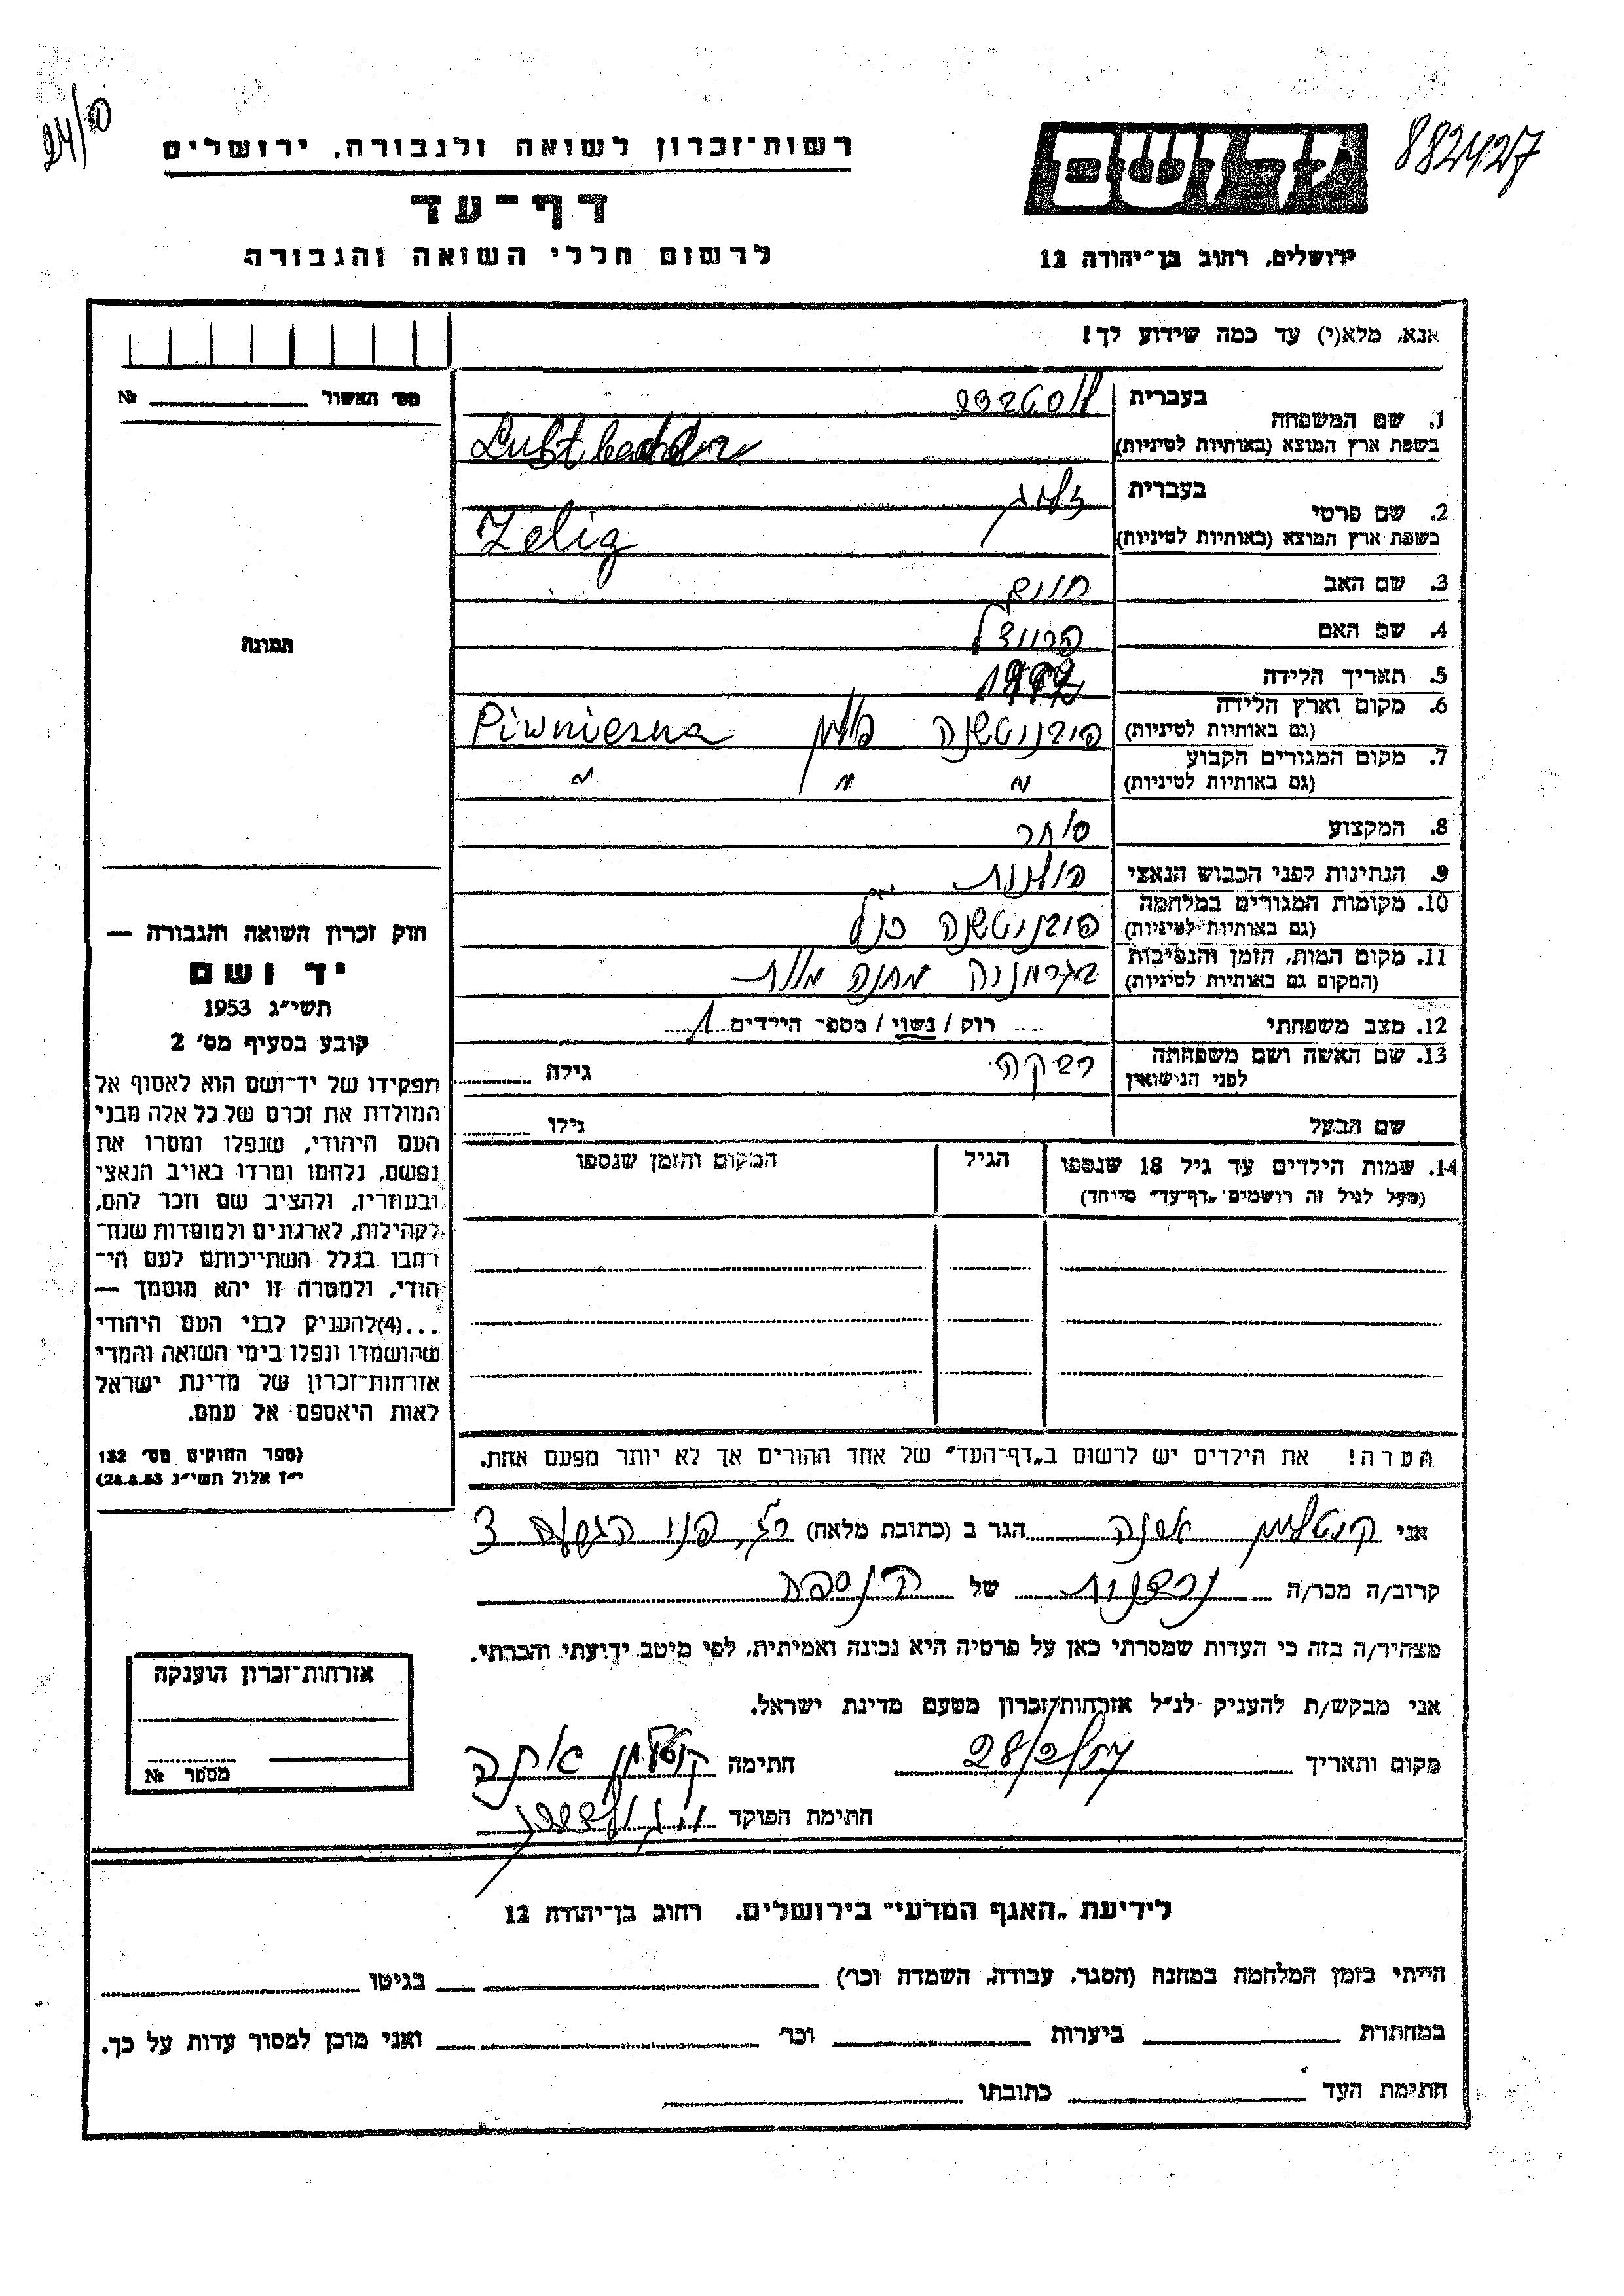 רשות־זכרון לשואה ולגבורה, ירושלים
דף־עד
לרשום חללי השואה והגבורה
ידושם
ירושלים, רחוב בן־יהודה 12
882427
24/
אנא, מלא(י) עד כמה שידוע לך!
מס׳ האשור № 
1. שם המשפחה
בעברית
בשפת ארץ המוצא (באותיות לטיניות)
2. שם פרטי
בעברית זליג
בשפת ארץ המוצא (באותיות לטיניות) Zelig
3. שם האב חיים
4. שם האם פריידל
5. תאריך הלידה
6. מקום וארץ הלידה
(גם באותיות לטיניות) פיבניטשנה פולין Piwniczna
7. מקום המגורים הקבוע
(גם באותיות לטיניות) " " "
8. המקצוע סוחר
9. הנתינות לפני הכבוש הנאצי פולנית
10. מקומות המגורים במלחמה
(גם באותיות לטיניות) פיבניטשנה כנ"ל
11. מקום המות, הזמן והנסיבות
(המקום גם באותיות לטיניות) בגרמניה מחנה מוות
12. מצב משפחתי רוק / נשוי / מספר הילדים 1
13. שם האשה ושם משפחתה
לפני הנישואין רבקה גילה
שם הבעל גילו
14. שמות הילדים עד גיל 18 שנספו
(מעל לגיל זה רושמים „דף־עד” מיוחד)
הגיל
המקום והזמן שנספו
הערה! את הילדים יש לרשום ב„דף־העד” של אחד ההורים אך לא יותר מפעם אחת.
תמונה
חוק זכרון השואה והגבורה —
יד ושם
תשי״ג 1953
קובע בסעיף מס׳ 2
תפקידו של יד־ושם הוא לאסוף אל
המולדת את זכרם של כל אלה מבני
העם היהודי, שנפלו ומסרו את
נפשם, נלחמו ומרדו באויב הנאצי
ובעוזריו, ולהציב שם וזכר להם,
לקהילות, לארגונים ולמוסדות שנח־
רבו בגלל השתייכותם לעם הי־
הודי, ולמטרה זו יהא מוסמך —
...(4)להעניק לבני העם היהודי
שהושמדו ונפלו בימי השואה והמרי
אזרחות־זכרון של מדינת ישראל
לאות היאספם אל עמם.
(ספר החוקים מס׳ 132
י״ז אלול תשי״ג 28.8.53)
אני הגר ב (כתובת מלאה)
קרוב/ה מכר/ה של
מצהיר/ה בזה כי העדות שמסרתי כאן על פרטיה היא נכונה ואמיתית, לפי מיטב ידיעתי והכרתי.
אני מבקש/ת להעניק לנ״ל אזרחות־זכרון מטעם מדינת ישראל.
מקום ותאריך חתימה
חתימת הפוקד
אזרחות־זכרון הוענקה
מספר №
לידיעת „האגף המדעי” בירושלים, רחוב בן־יהודה 12
הייתי בזמן המלחמה במחנה (הסגר, עבודה, השמדה וכו׳) בגיטו
במחתרת ביערות וכו׳ ואני מוכן למסור עדות על כך.
חתימת העד כתובתו